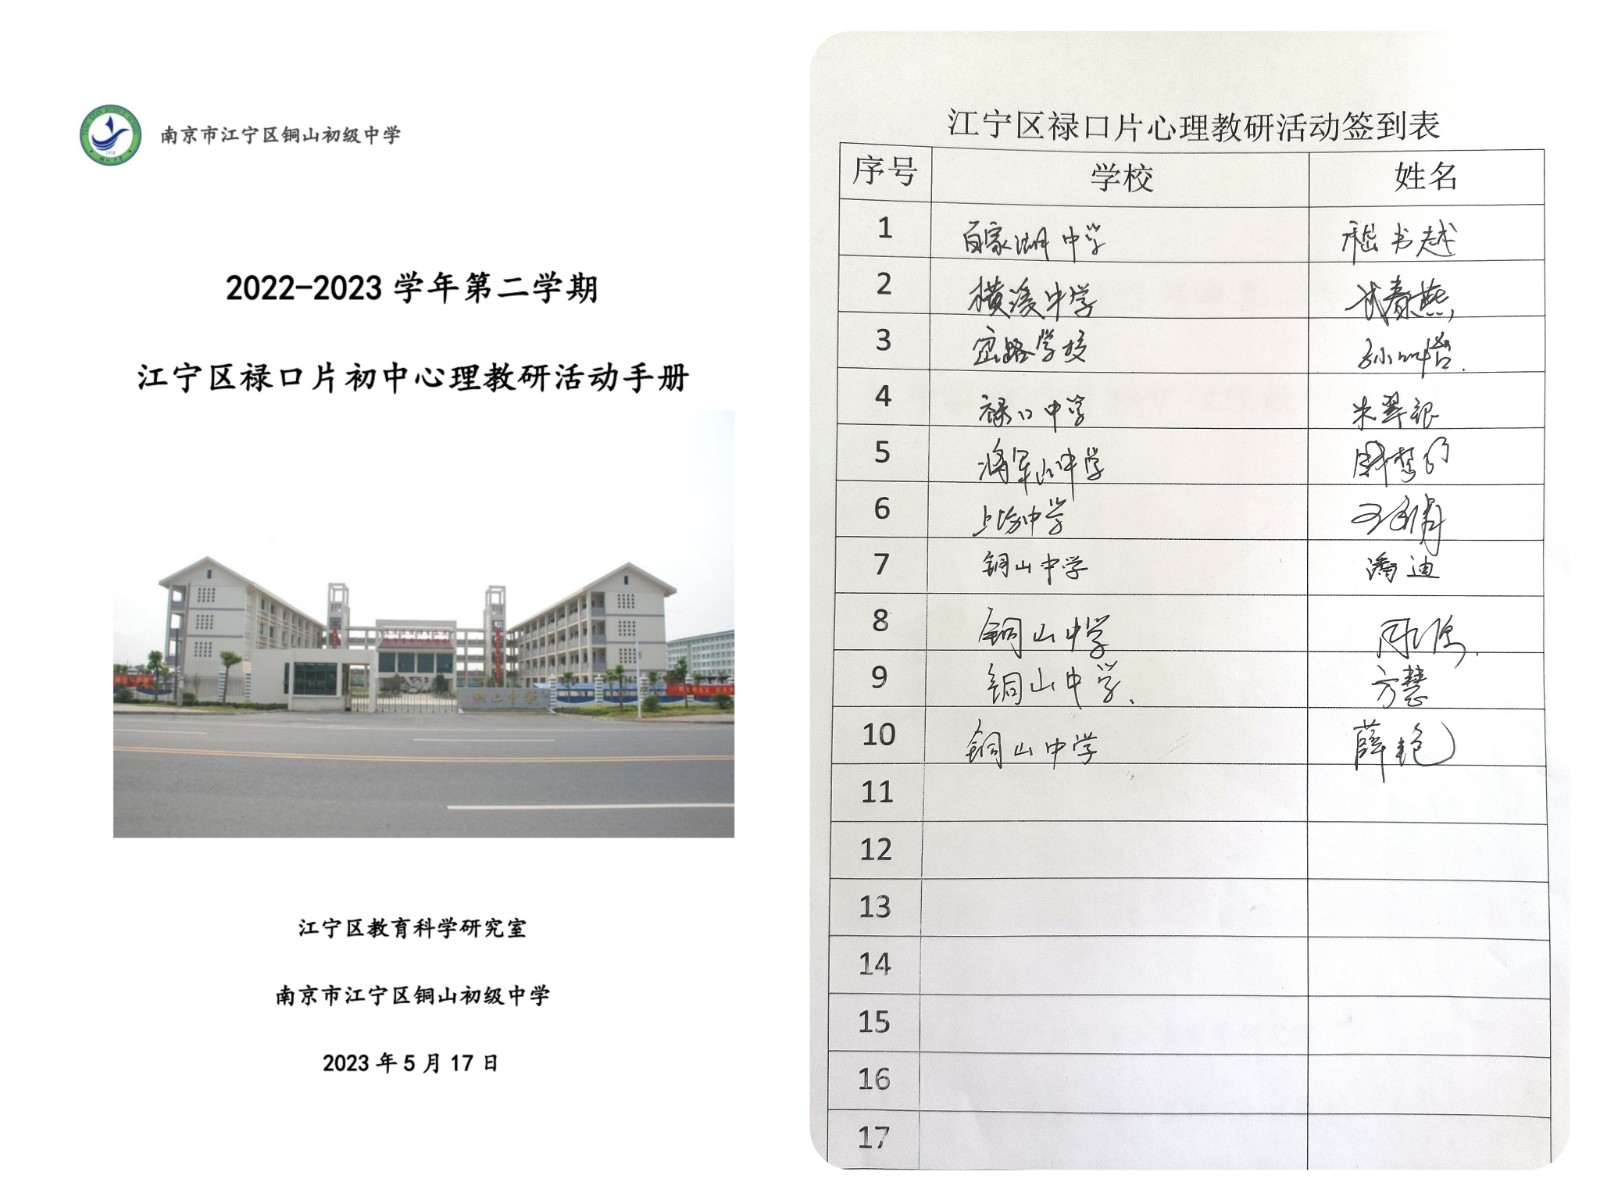 南京市江宁区铜山初级中学
2022-2023 学年第二学期
江宁区禄口片初中心理教研活动手册
铜山中学
江宁区教育科学研究室
南京市江宁区铜山初级中学
2023 年 5 月 17 日
江宁区禄口片心理教研活动签到表
序号 学校 姓名
1 百家湖中学 嵇书越
2 横溪中学 春燕
3 学校 孙
4 禄口中学 朱翠银
5 将军山中学 周梦
6 上坊中学 王
7 铜山中学 潘迪
8 铜山中学
9 铜山中学. 方慧
10 铜山中学 薛艳
11
12
13
14
15
16
17